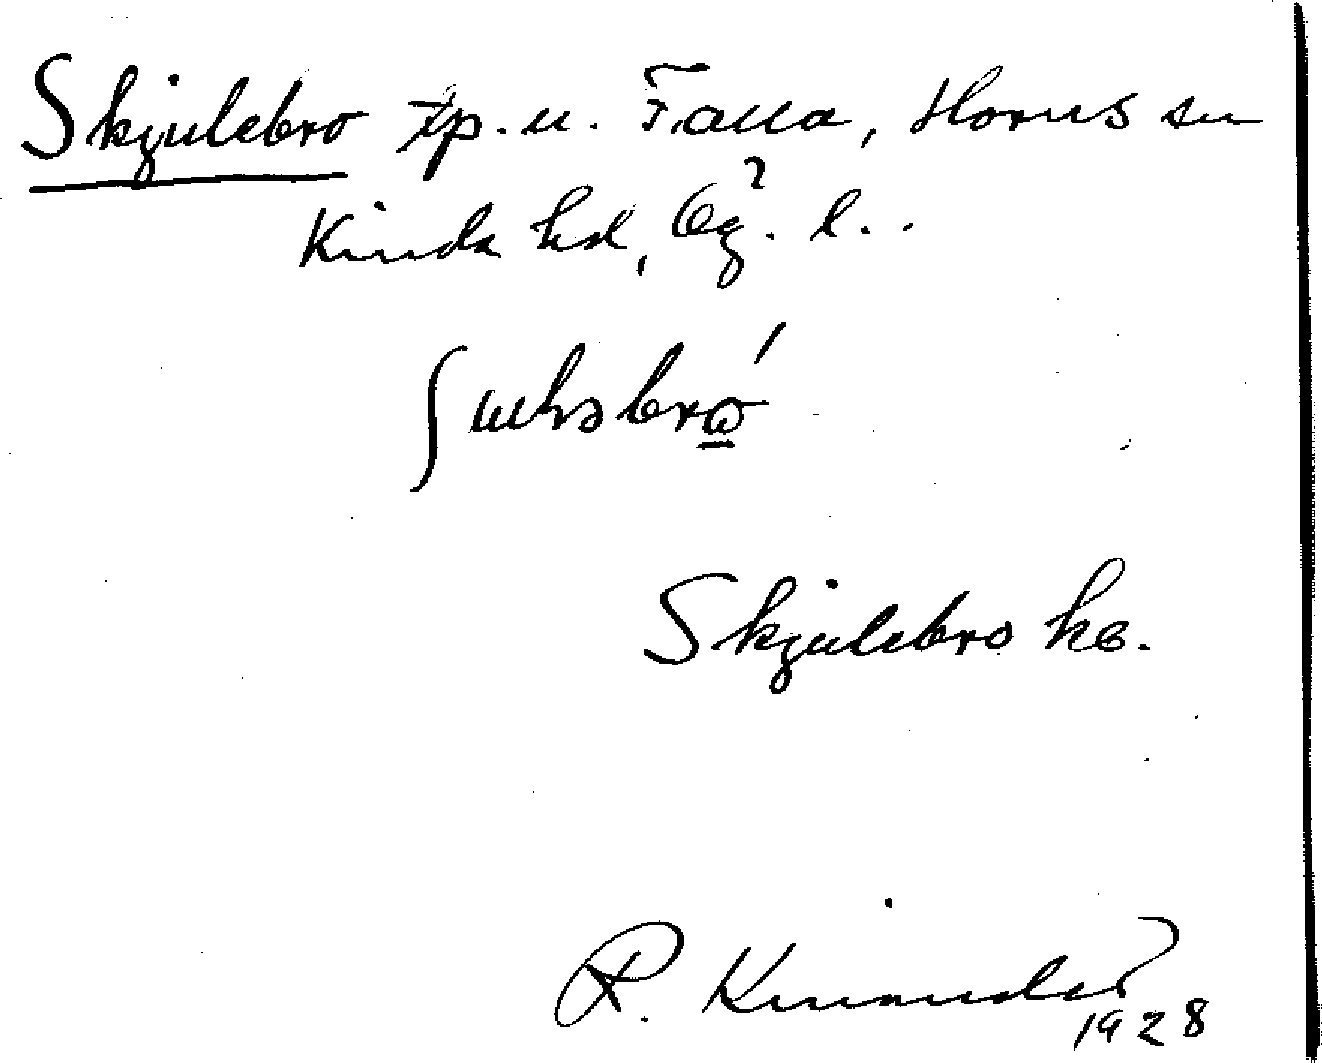 Skjulebro tp. u. Falla, Horns sn
Kinda hd, Ög. l..
Skjulebro kb.
R. Kinander
1928